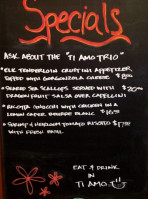 Specials
ASK ABOUT THE "TI AMO TRIO"
*ELK TENDERLOIN CROSTINI APPETIZER
TOPPED WITH GORGONZOLA CHEESE $8.00
SEARED SEA SCALLOPS SERVED WITH
DRAGON FRUIT SALSA OVER CAPELLINI
RICOTTA GNOCCHI WITH CHICKEN IN A
LEMON CAPER BEURRE BLANC
SHRIMP & HEIRLOOM TOMATO RISOTTO
WITH FRESH BASIL
EAT & DRINK
IN
TI AMO